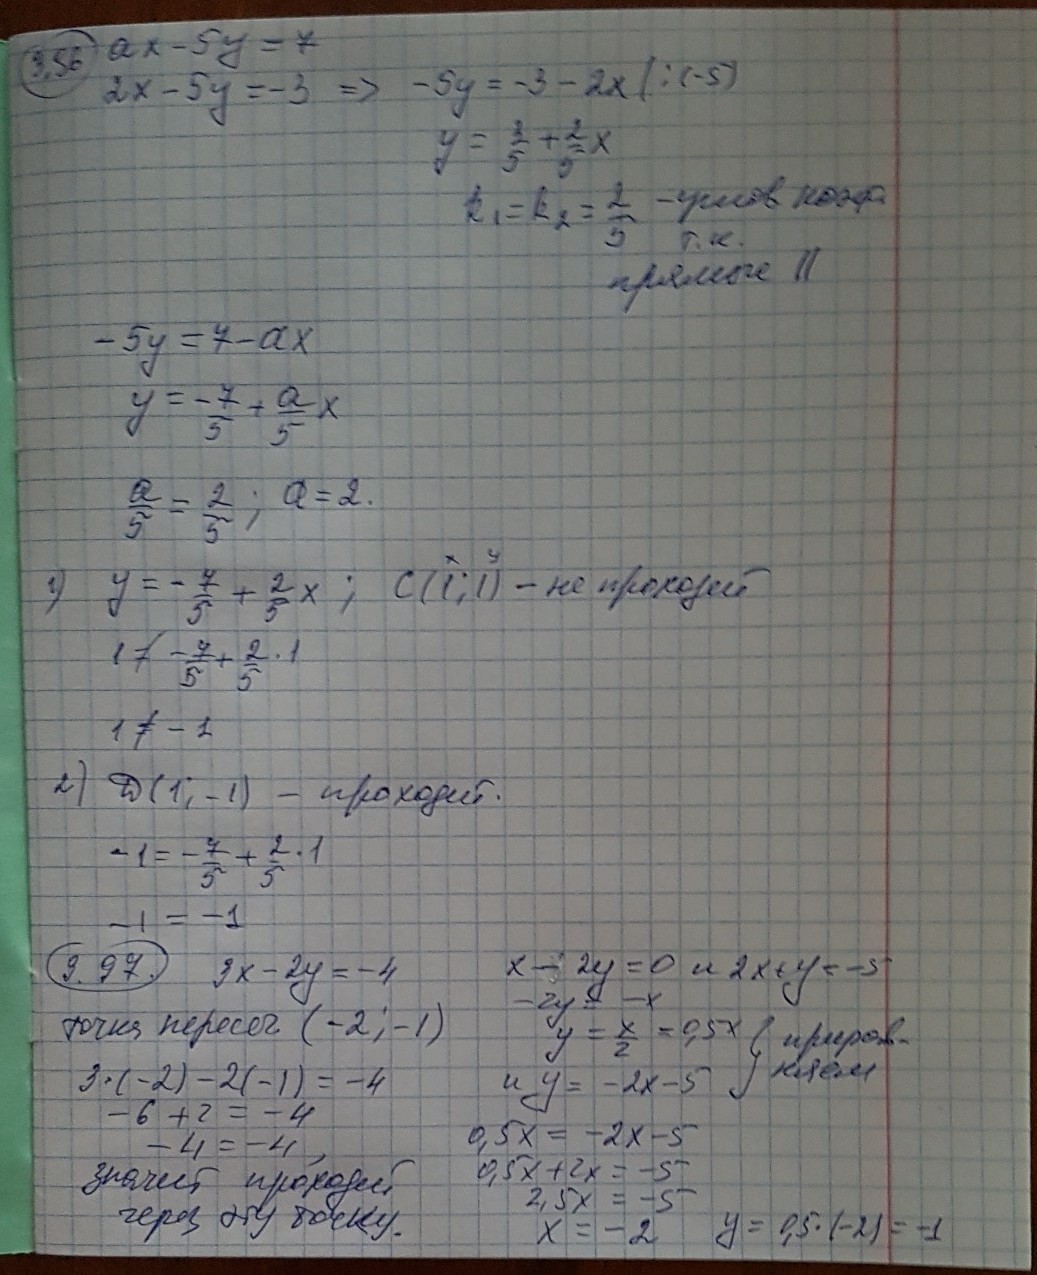 3.56 ax - 5y = 7
2x - 5y = -3 => -5y = -3 - 2x | : (-5)
y = 3/5 + 2/5 x
k₁ = k₂ = 2/5 - углов коэф.
т.к.
прямые ||
-5y = 7 - ax
y = -7/5 + a/5 x
a/5 = 2/5 ; a = 2.
1) y = -7/5 + 2/5 x ; C(1; 1) - не проходит
x y
1 ≠ -7/5 + 2/5 · 1
1 ≠ -1
2) D(1; -1) - проходит.
-1 = -7/5 + 2/5 · 1
-1 = -1
3.97. 3x - 2y = -4
точка пересеч (-2; -1)
3·(-2) - 2(-1) = -4
-6 + 2 = -4
-4 = -4,
значит проходит
через эту точку.
x - 2y = 0 и 2x + y = -5
-2y = -x
y = x/2 = 0,5x } приров-
и y = -2x - 5 } няем
0,5x = -2x - 5
0,5x + 2x = -5
2,5x = -5
x = -2 y = 0,5·(-2) = -1